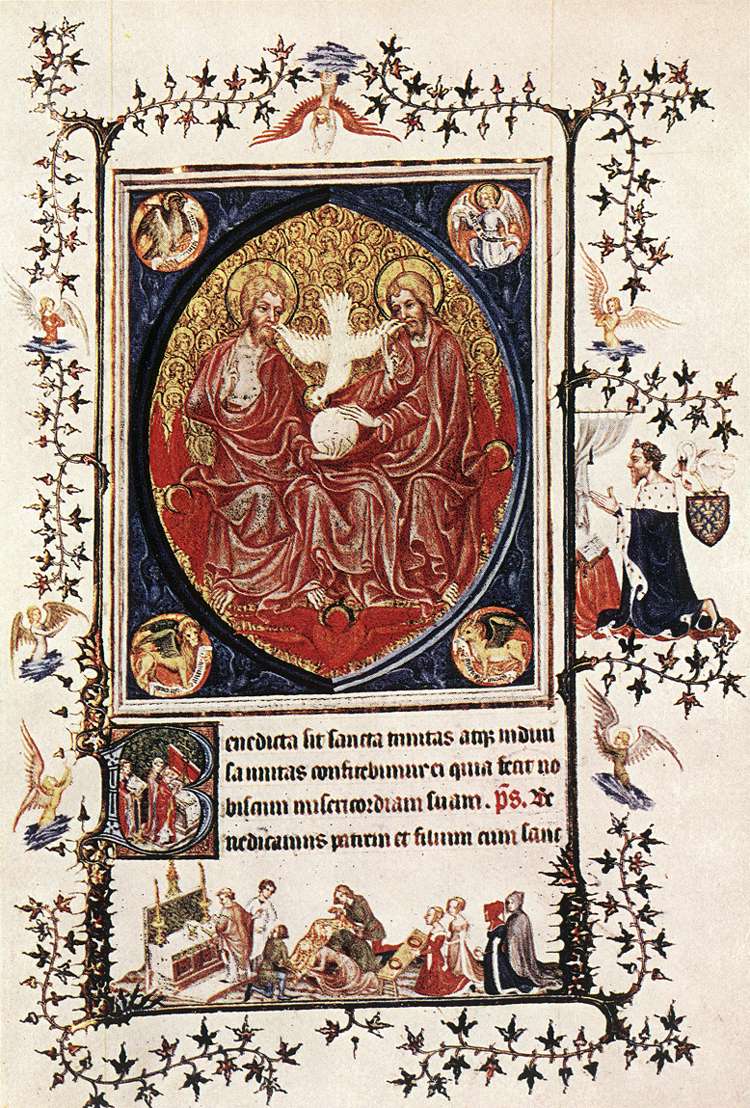 Benedicta sit sancta trinitas atq; indiui
sa unitas confitebimur ei quia fecit no
biscum misericordiam suam. p̃s. Be
nedicamus patrem et filium cum sanc